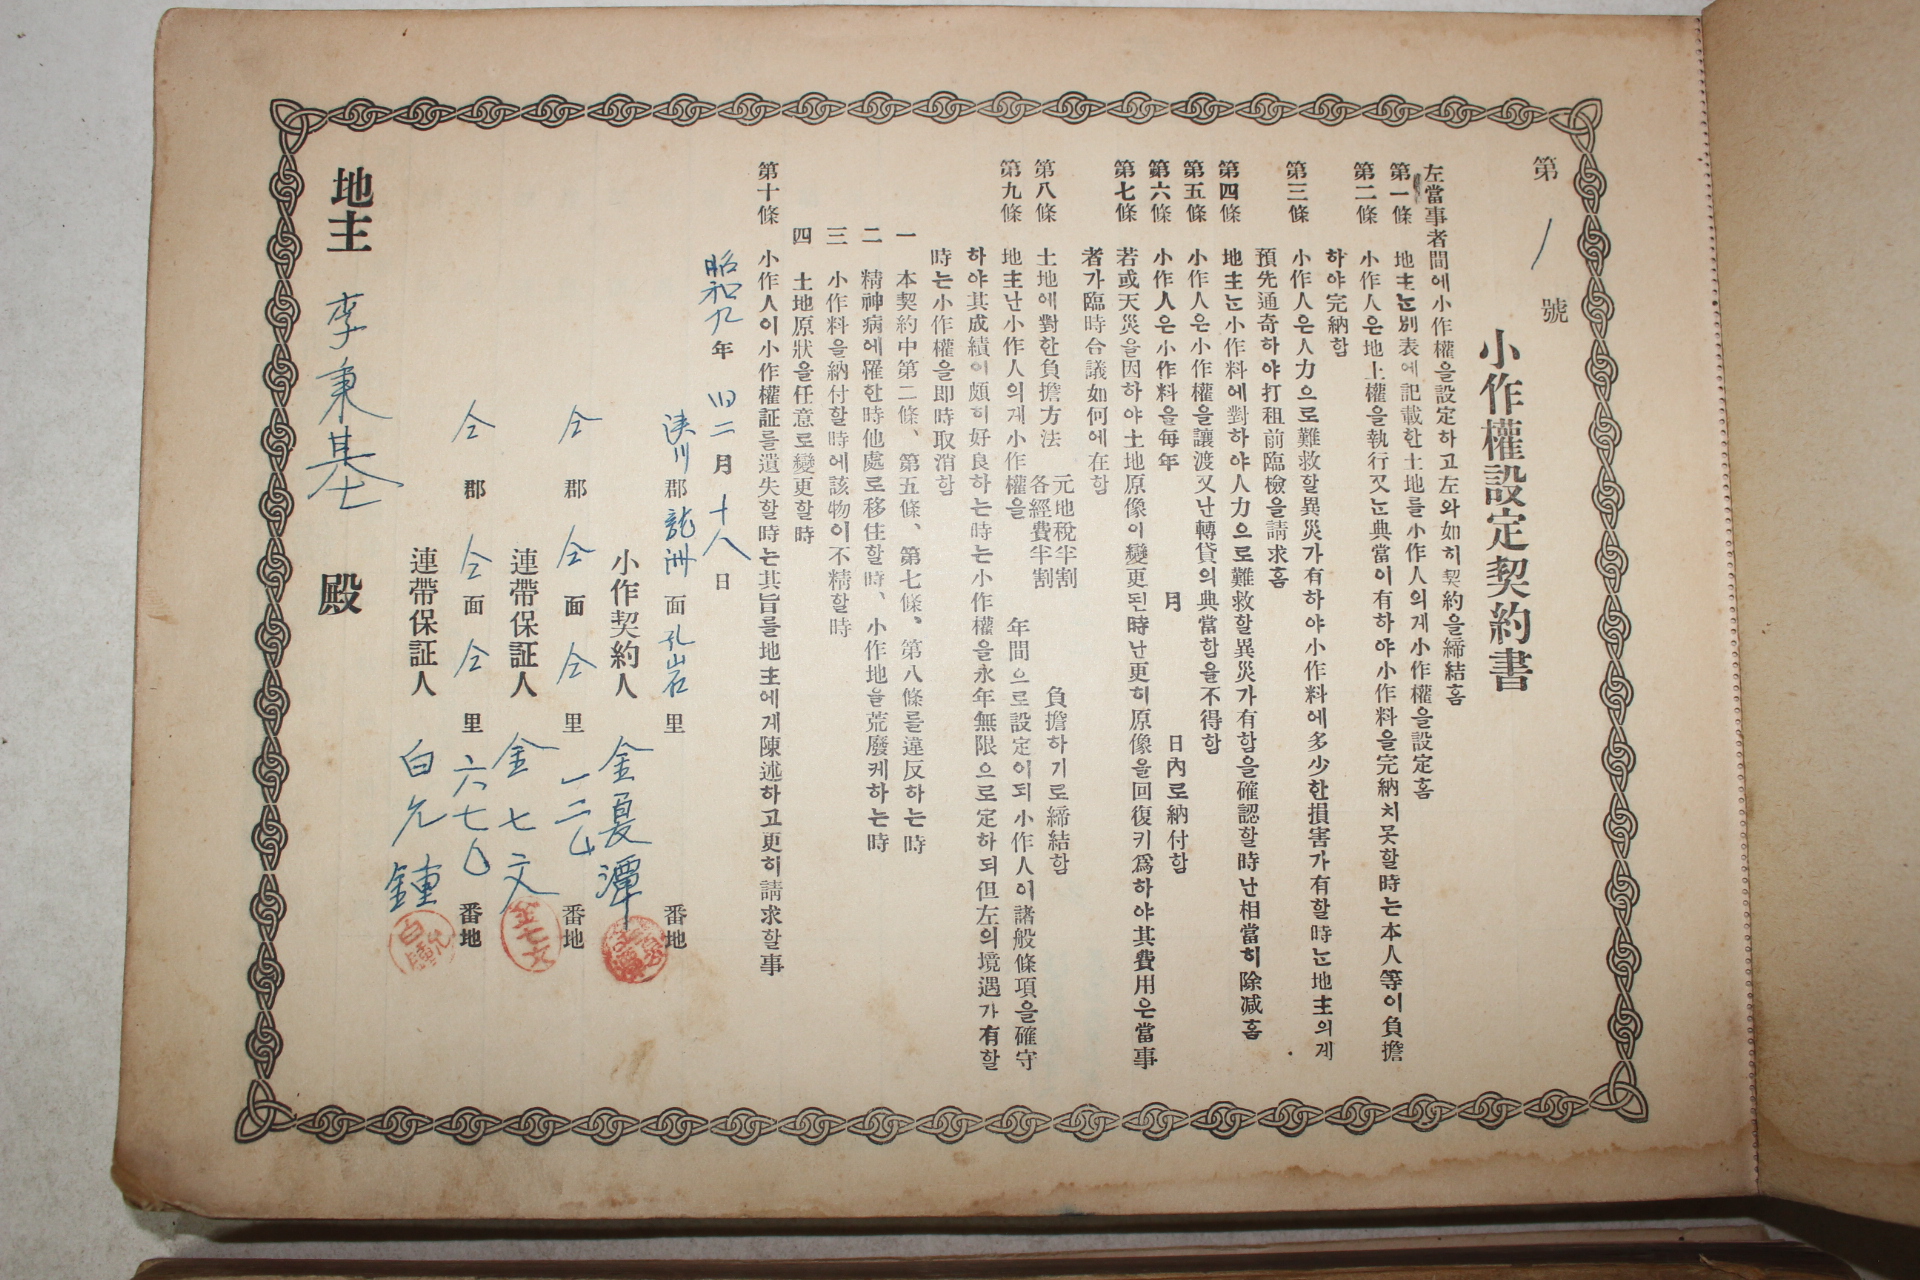 第 1 號
小作權設定契約書
左當事者間에小作權을設定하고左와如히契約을締結홈
第一條 地主는別表에記載한土地를小作人의게小作權을設定홈
第二條 小作人은地上權을執行又는典當이有하야小作料을完納치못할時는本人等이負擔
하야完納함
第三條 小作人은人力으로難救할異災가有하야小作料에多少한損害가有할時는地主의게
預先通奇하야打租前臨檢을請求홈
第四條 地主는小作料에對하야人力으로難救할異災가有함을確認할時난相當히除减홈
第五條 小作人은小作權을讓渡又난轉貸의典當함을不得함
第六條 小作人은小作料을每年 月 日內로納付함
第七條 若或天災을因하야土地原像이變更된時난更히原像을回復키爲하야其費用은當事
者가臨時合議如何에在함
第八條 土地에對한負擔方法 元地稅半割 各經費半割 負擔하기로締結함
第九條 地主난小作人의게小作權을 年間으로設定이되小作人이諸般條項을確守
하야其成績이頗히好良하는時는小作權을永年無限으로定하되但左의境遇가有할
時는小作權을即時取消함
一 本契約中第二條、第五條、第七條、第八條를違反하는時
二 精神病에罹한時他處로移住할時、小作地을荒廢케하는時
三 小作料을納付할時에該物이不精할時
四 土地原狀을任意로變更할時
第十條 小作人이小作權証를遺失할時는其旨를地主에게陳述하고更히請求할事
昭和九年 四二月 十八日
陜川郡 龍洲面 孔岩里 番地
小作契約人 金夏潭
仝郡 仝面 仝里 番地
連帶保証人 金七文
仝郡 仝面 仝里 六七〇番地
連帶保証人 白允鍾
地主 李秉基 殿